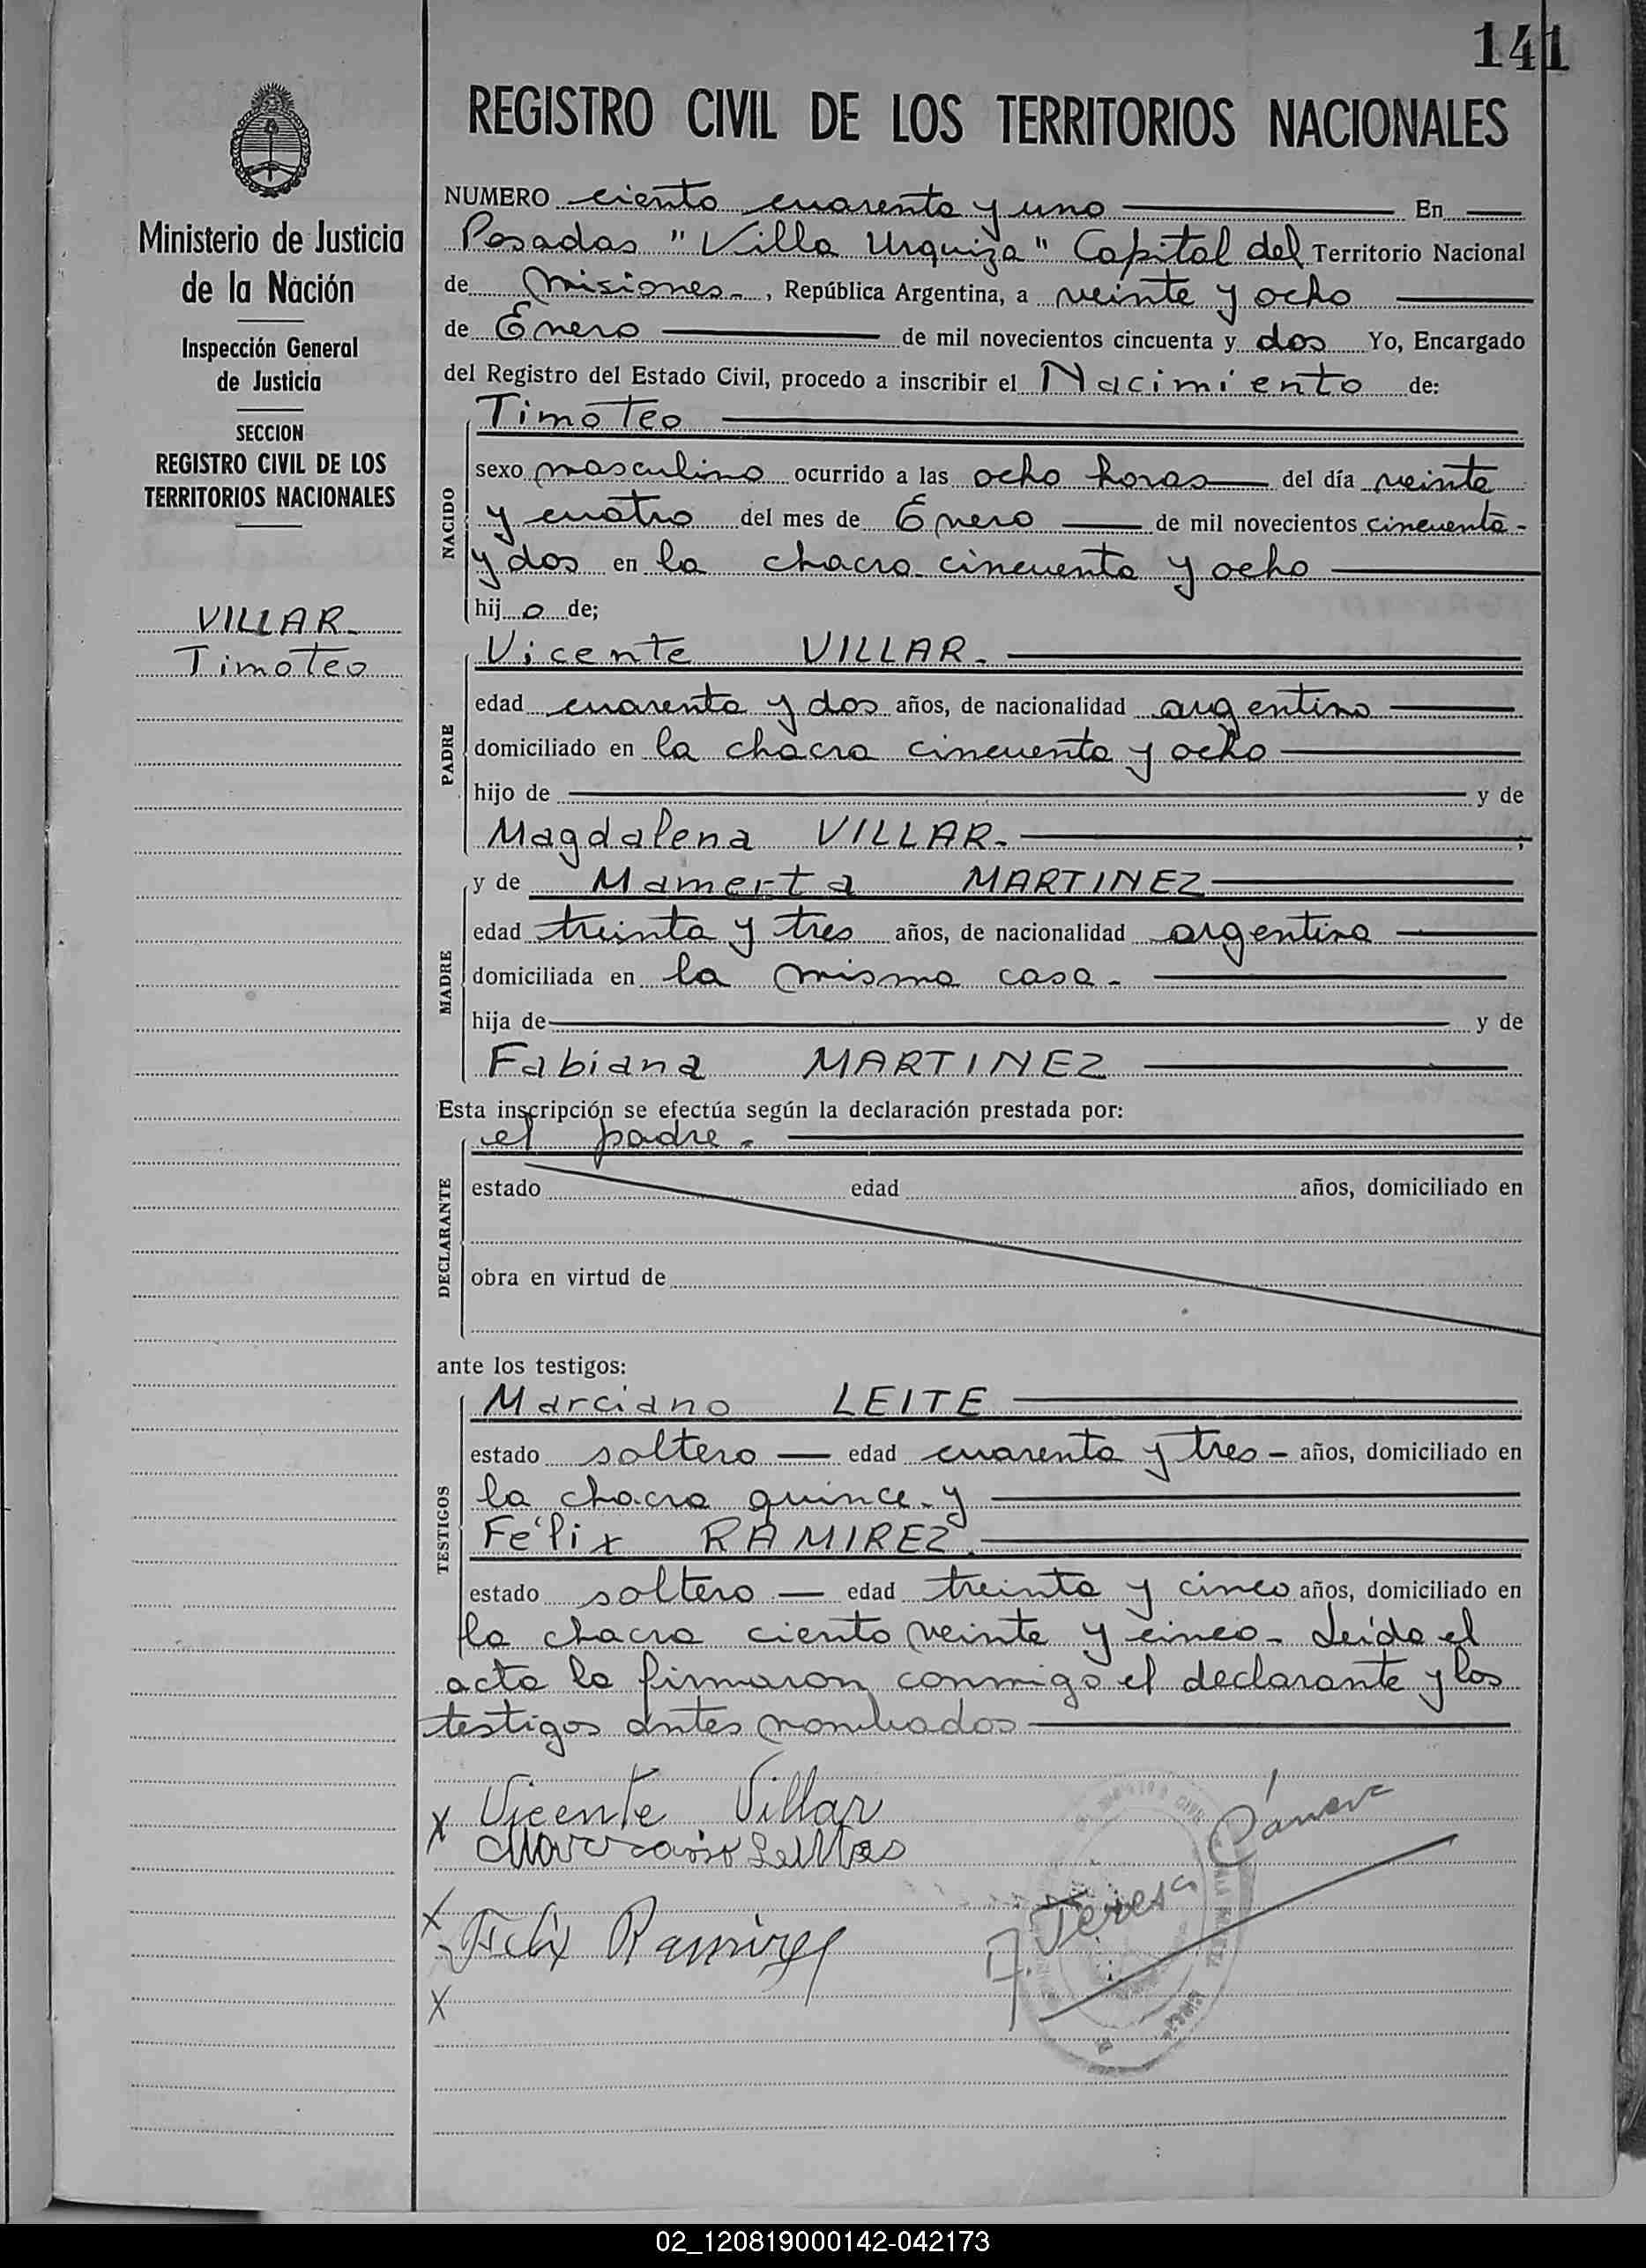 141
REGISTRO CIVIL DE LOS TERRITORIOS NACIONALES
Ministerio de Justicia
de la Nación
Inspección General
de Justicia
SECCION
REGISTRO CIVIL DE LOS
TERRITORIOS NACIONALES
VILLAR
Timoteo
NUMERO ciento cuarenta y uno En
Posadas "Villa Urquiza" Capital del Territorio Nacional
de Misiones, República Argentina, a veinte y ocho
de Enero de mil novecientos cincuenta y dos Yo, Encargado
del Registro del Estado Civil, procedo a inscribir el Nacimiento de:
NACIDO
Timoteo
sexo masculino ocurrido a las ocho horas del día veinte
y cuatro del mes de Enero de mil novecientos cincuenta
y dos en la chacra cincuenta y ocho
hijo de;
PADRE
Vicente VILLAR.
edad cuarenta y dos años, de nacionalidad argentino
domiciliado en la chacra cincuenta y ocho
hijo de y de
Magdalena VILLAR. ;
MADRE
y de Mamerta MARTINEZ
edad treinta y tres años, de nacionalidad argentina
domiciliada en la misma casa.
hija de y de
Fabiana MARTINEZ
Esta inscripción se efectúa según la declaración prestada por:
DECLARANTE
el padre.
estado edad años, domiciliado en
obra en virtud de
ante los testigos:
TESTIGOS
Marciano LEITE
estado soltero — edad cuarenta y tres – años, domiciliado en
la chacra quince y
Félix RAMIREZ.
estado soltero — edad treinta y cinco años, domiciliado en
la chacra ciento veinte y cinco. Leída el
acta la firmaron conmigo el declarante y los
testigos antes nombrados
x Vicente Villar
x Felix Ramirez
x
A. Teresa
02_120819000142-042173